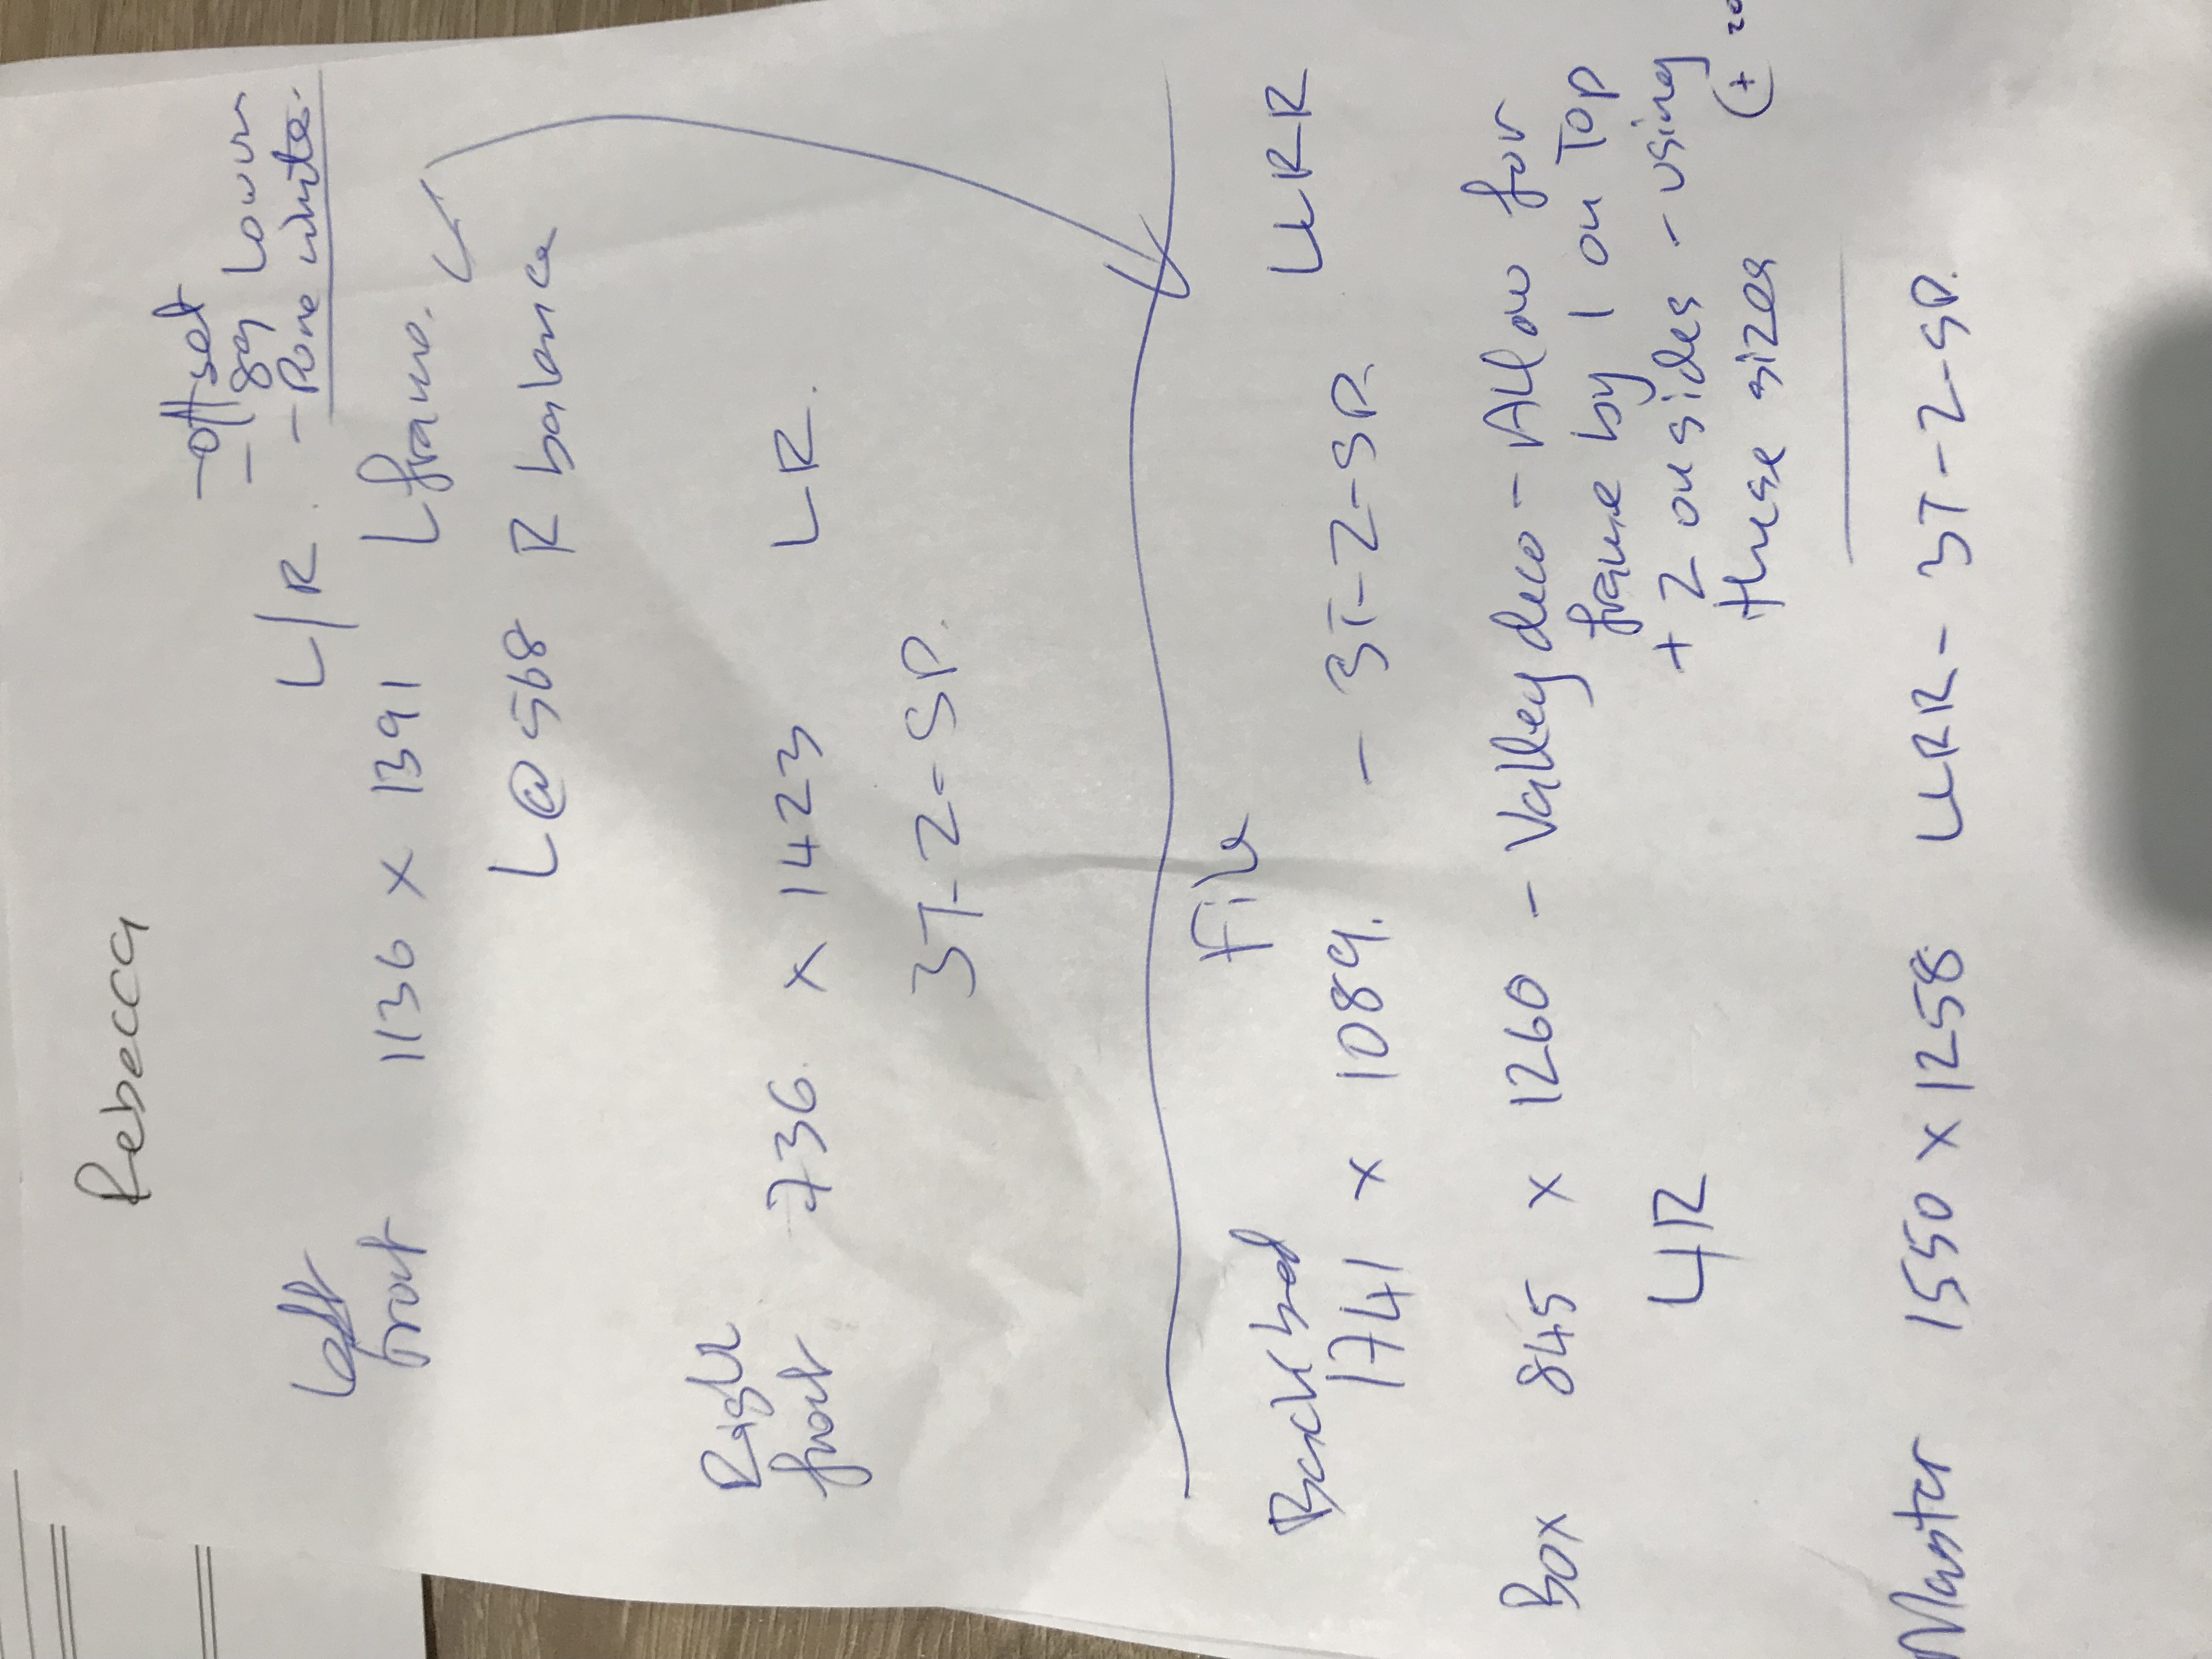 Rebecca
- offset
- 89 Louvr
- Pure white.
Left front
L/R
1136 x 1391 L frame.
L@568 R balance
Right front
736 x 1423 LR.
3T-Z-SP.
File
Back bed
1741 x 1089. - 3T-Z-SP. LRR
Box 845 x 1260 - Valley deco - Allow for
frame by 1 on Top
+ 2 on sides - using
these sizes (+ 20
Master 1550 x 1258 LRR - 3T-Z-SP.